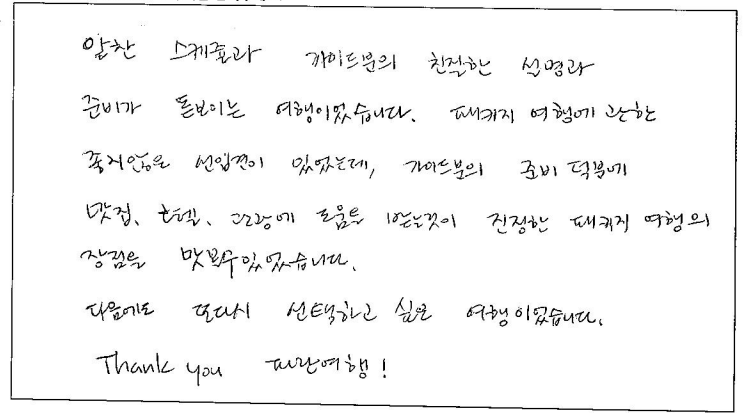 알찬 스케쥴과 가이드분의 친절한 설명과
준비가 돋보이는 여행이었습니다. 패키지 여행에 관한
좋지않은 선입견이 있었는데, 가이드분의 준비 덕분에
맛집, 호텔, 관광에 도움을 받는것이 진정한 패키지 여행의
장점을 맛볼수있었습니다.
다음에도 또다시 선택하고 싶은 여행이었습니다.
Thank you 파란여행!